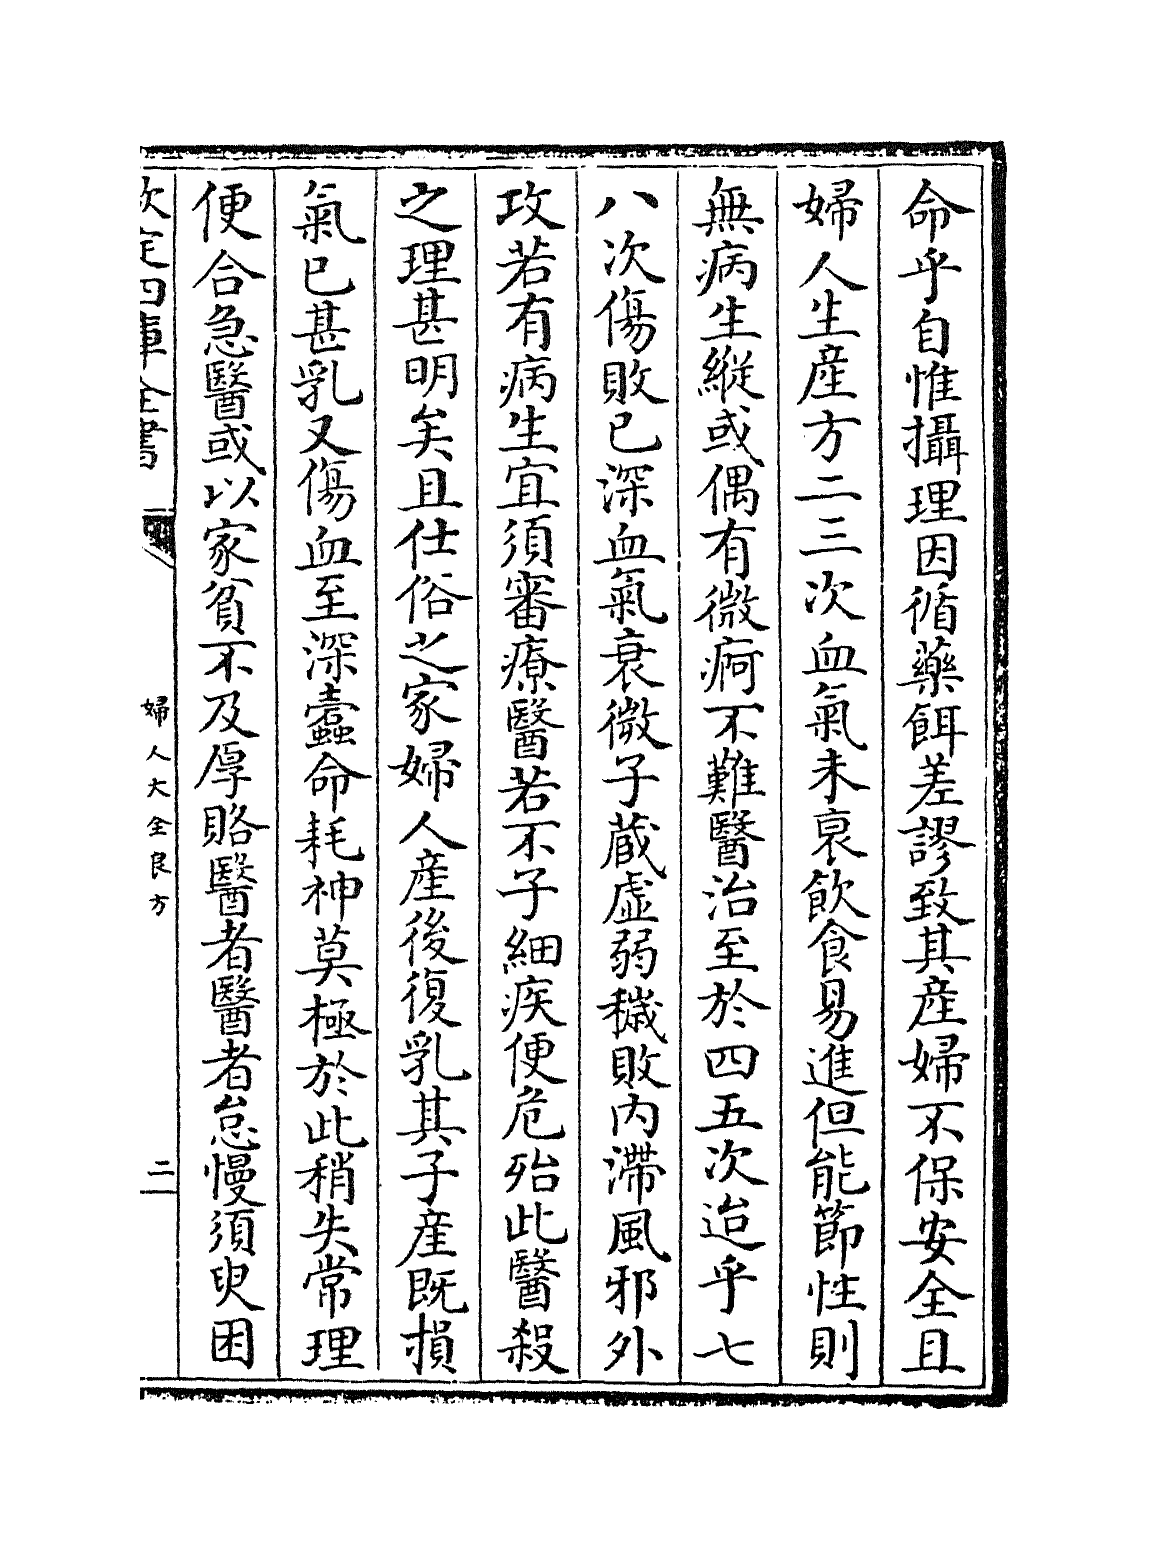 命乎自惟攝理因循藥餌差謬致其産婦不保安全且
婦人生産方二三次血氣未衰飲食易進但能節性則
無病生縱或偶有微痾不難醫治至於四五次迨乎七
八次傷敗已深血氣衰微子蔵虚弱穢敗内滯風邪外
攻若有病生宜須審療醫若不子細疾便危殆此醫殺
之理甚明矣且仕俗之家婦人産後復乳其子産既損
氣已甚乳又傷血至深蠧命耗神莫極於此稍失常理
便合急醫或以家貧不及厚賂醫者醫者怠慢須臾困
欽定四庫全書
婦人大全良方
二